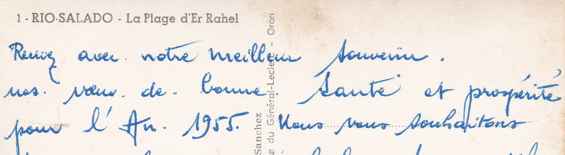 1 - RIO-SALADO - La Plage d'Er Rahel
Recevez avec notre meilleur souvenir.
nos vœux de bonne Santé et prospérité
pour l'An 1955. Nous vous souhaitons
Sanchez
du Général-Leclerc - Oran